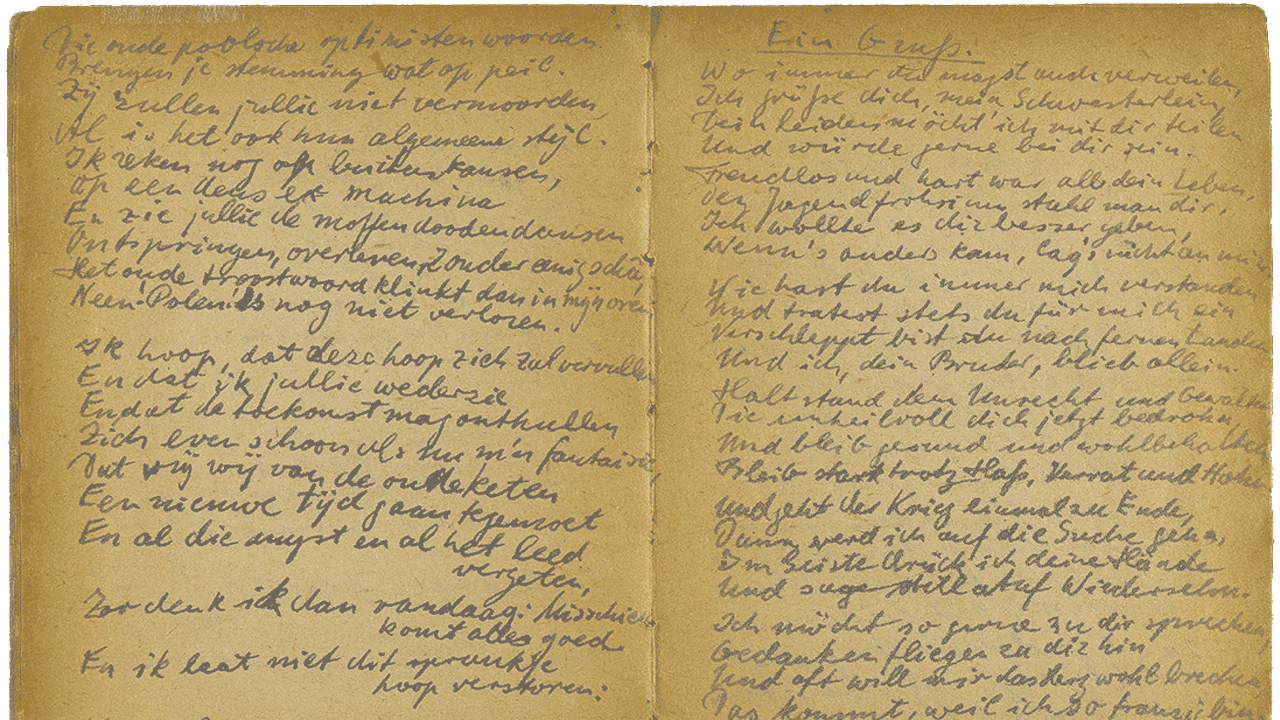 Die oude poolsche optimisten woorden
Brengen je stemming wat op peil.
Zij zullen jullie niet vermoorden
Al is het ook hun algemeene stijl.
Ik reken nog op buitenkansen,
Op een deus ex machina
En zie jullie de moffendoodendansen
Ontspringen, overleven, zonder eenig scha
Het oude troostwoord klinkt dan in mijn oren
Neen: Polen is nog niet verloren.
Ik hoop, dat deze hoop zich zal vervullen
En dat ik jullie wederzie
En dat de toekomst mag onthullen
Zich even schoon als nu m'n fantaisie
Dat wij van de
Een nieuwe tijd gaan tegemoet
En al die angst en al het leed
vergeten,
Zoo denk ik dan vandaag: Misschien
komt alles goed
En ik laat niet dit sprankje
hoop verstoren:
Ein Gruß.
Wo immer du magst auch verweilen,
Ich grüße dich, mein Schwesterlein,
Dein Leiden möcht' ich mit dir teilen
Und würde gerne bei dir sein.
Freudlos und hart war all dein Leben,
Den Jugendfrohsinn stahl man dir.
Ich wollte es dir besser geben,
Wenn's anders kam, lag's nicht an mir
Wie hast du immer mich verstanden
Und tratest stets du für mich ein
Verschleppt bist du nach fernen Landen
Und ich, dein Bruder, blieb allein.
Halt stand dem Unrecht und Gewalten
Die unheilvoll dich jetzt bedrohn
Und bleib gesund und wohlbehalten
Bleib stark trotz Haß, Verrat und Hohn
Und geht der Krieg einmal zu Ende,
Dann werd ich auf die Suche gehn,
Im Geiste drück ich deine Hände
Und sage still auf Wiedersehn.
Ich möcht so gerne zu dir sprechen,
Gedanken fliegen zu dir hin
Und oft will mir das Herz wohl brechen,
Das kommt, weil ich so bin